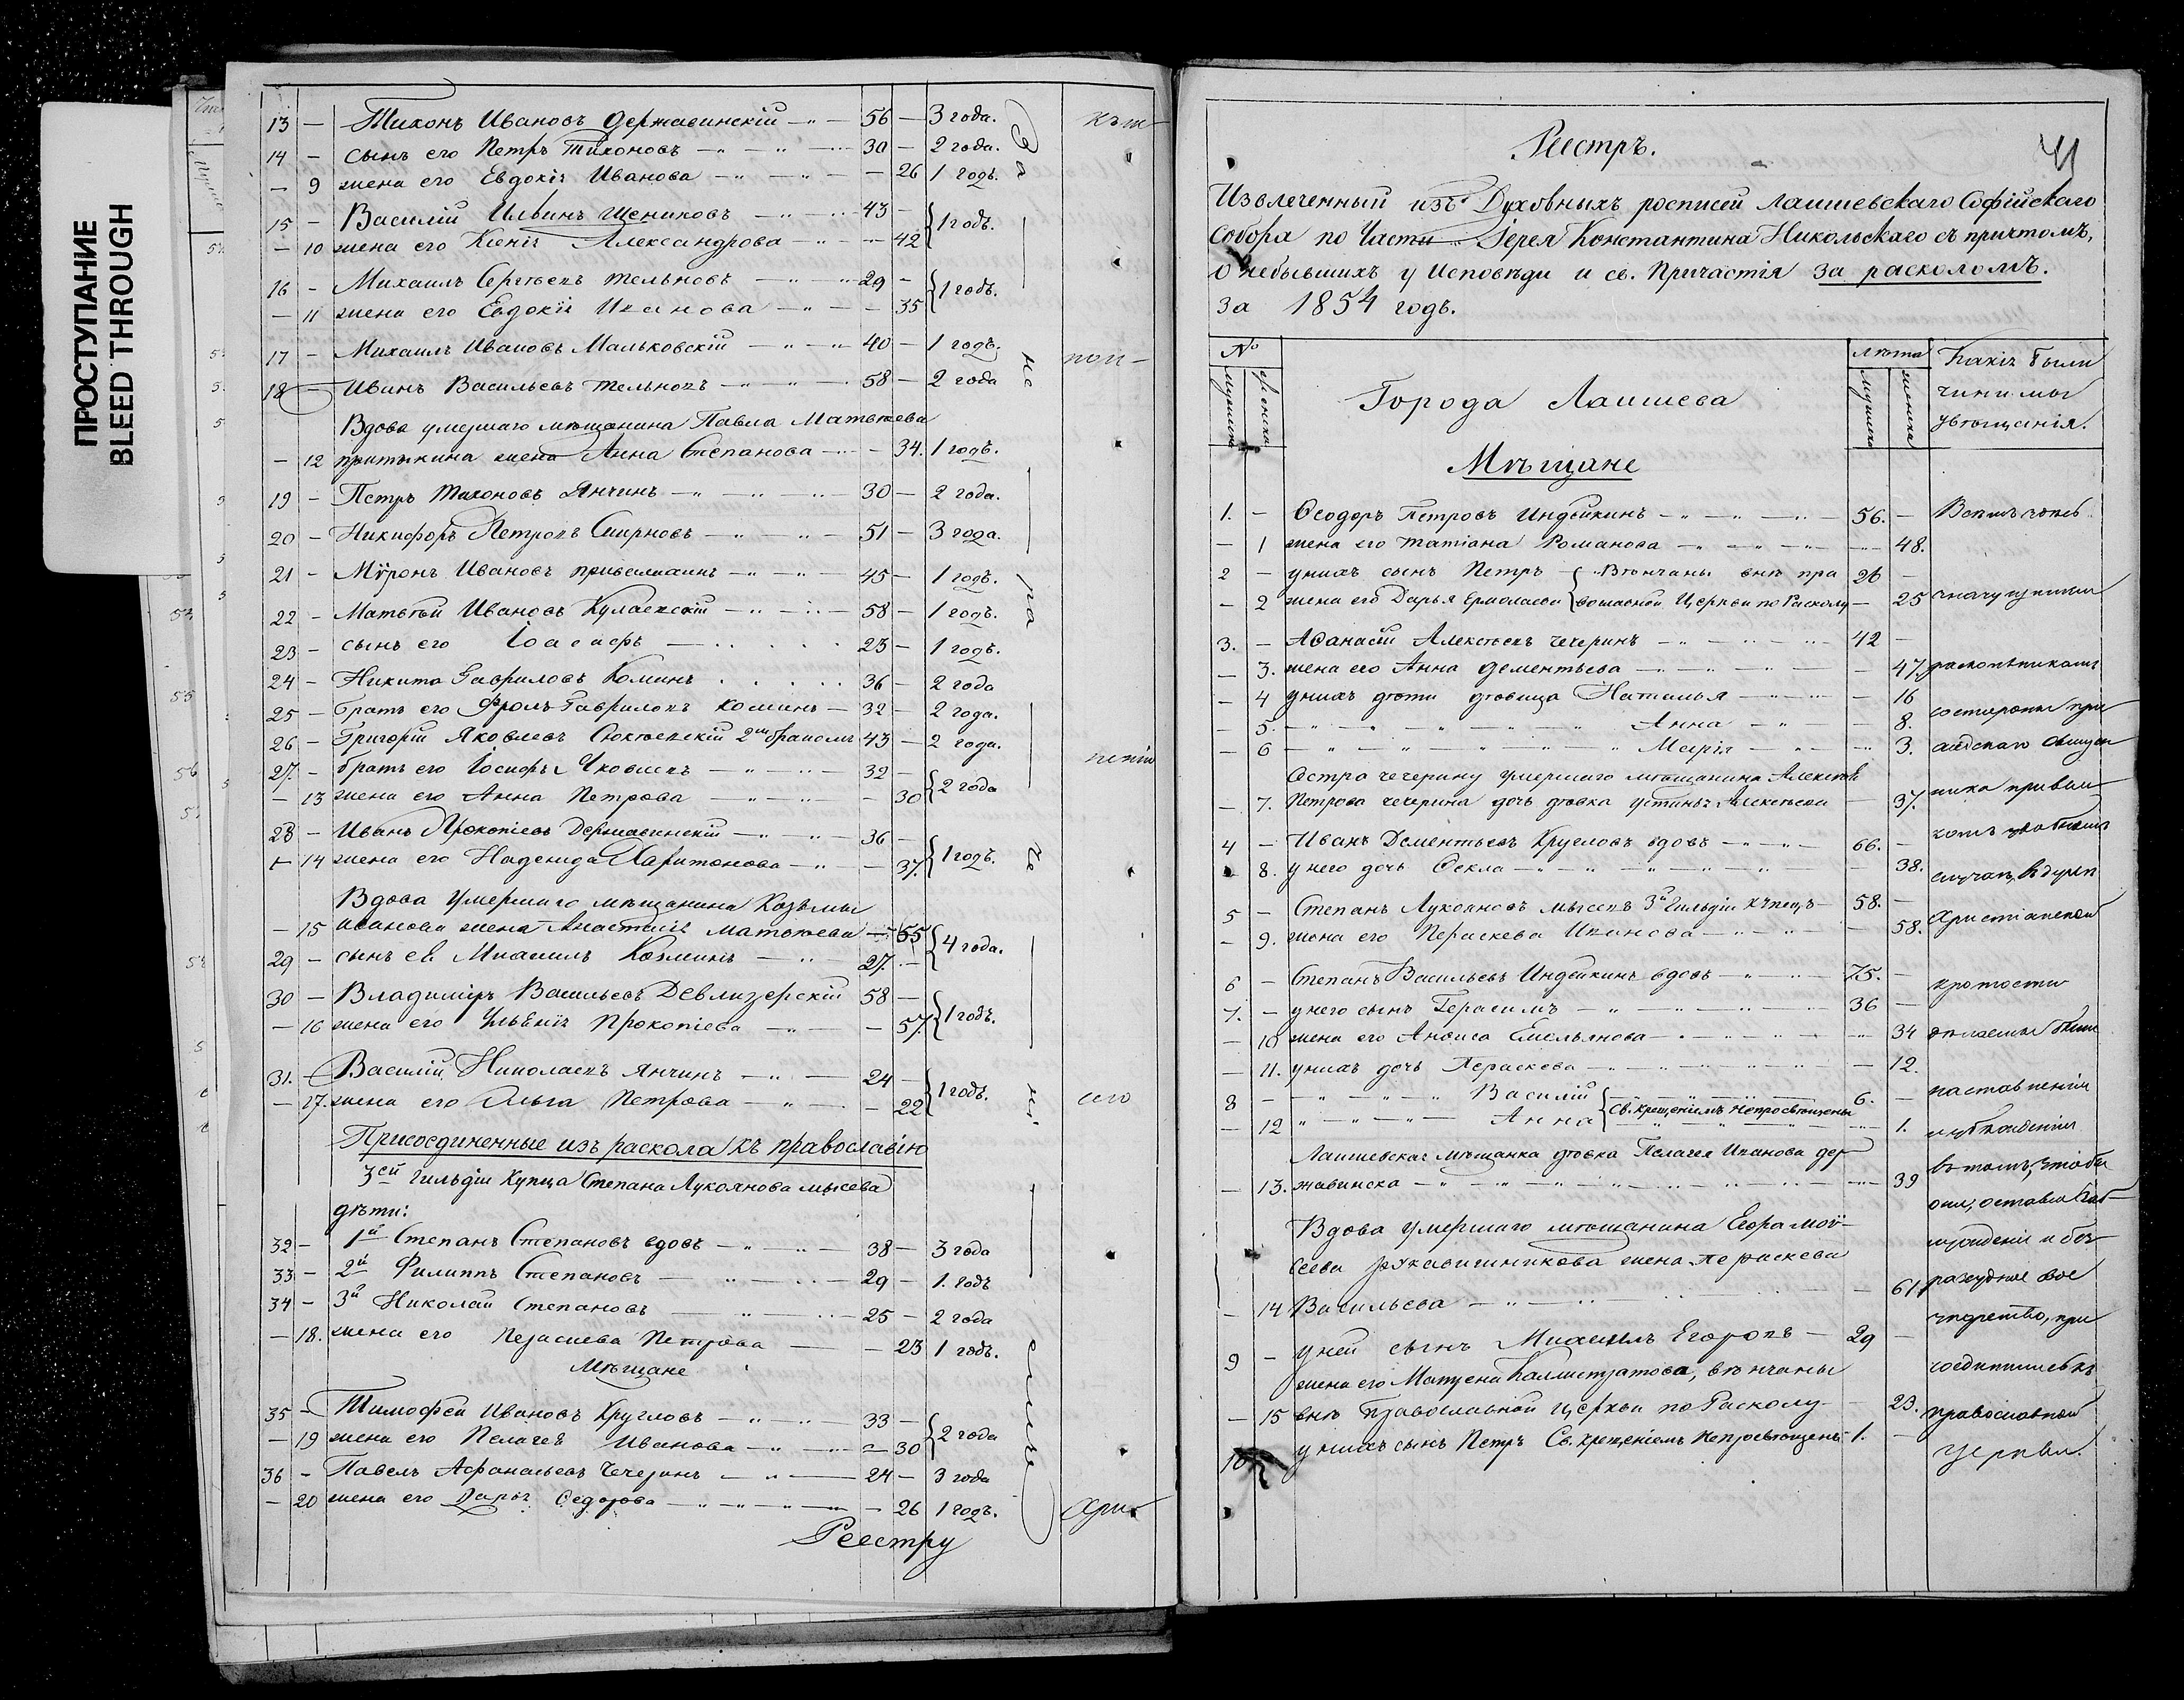 ПРОСТУПАНИЕ
BLEED THROUGH
13 — Тихонъ Ивановъ Державинскій 56 — 3 года.
14 — сынъ его Петръ Тихоновъ 30 — 2 года.
— 9 жена его Евдокія Иванова — 26 1 годъ.
15 — Василій Ильинъ Щениковъ 43 —
— 10 жена его Ксенія Александрова — 42 1 годъ.
16 — Михаилъ Сергѣевъ Тельновъ 29 —
— 11 жена его Евдокія Иванова — 35 1 годъ.
17 — Михаилъ Ивановъ Мальковскій 40 — 1 годъ.
18 — Иванъ Васильевъ Тельновъ 58 — 2 года
Вдова умершаго мѣщанина Павла Матвѣева
— 12 жена Анна Степанова — 34. 1 годъ.
19 — Петръ Тихоновъ Янчинъ 30 — 2 года.
20 — Никифоръ Петровъ Смирновъ 51 — 3 года.
21 — Мѵронъ Ивановъ 45 — 1 годъ.
22 — Матвѣй Ивановъ Кулаевскій 58 — 1 годъ.
23 — сынъ его Іоасафъ 23 — 1 годъ.
24 — Никита Гавриловъ Коминъ 36 — 2 года
25 — братъ его Фролъ Гавриловъ Коминъ 32 — 2 года.
26 — Григорій Яковлевъ 2мъ бракомъ 43 — 2 года.
27. — братъ его Іосифъ Яковлевъ 32 —
— 13 жена его Анна Петрова — 30 2 года
28 — Иванъ Прокопіевъ Державинскій 36 —
— 14 жена его Надежда Харитонова — 37. 1 годъ.
Вдова умершаго мѣщанина Козьмы
— 15 Иванова жена Анастасія Матвѣева — 55 4 года.
29 — сынъ ея Михаилъ Козминъ 27. —
30 — Владиміръ Васильевъ Девлизерскій 58 —
— 16 жена его Прокопіева — 57. 1 годъ.
31. — Василій Николаевъ Янчинъ 24 —
— 17. жена его Ольга Петрова — 22 1 годъ.
Присоединенные изъ раскола къ православію
3ей гильдіи Купца Степана Лукоянова Мысева
дѣти:
32 — 1й Степанъ Степановъ вдовъ 38 — 3 года
33 — 2й Филиппъ Степановъ 29 — 1. годъ
34 — 3й Николай Степановъ 25 — 2 года
— 18. жена его Петрова — 23 1 годъ.
Мѣщане
35 — Тимофей Ивановъ Кругловъ 33 —
— 19 жена его Пелагея Иванова — 30 2 года
36 — Павелъ Афанасьевъ Чечеринъ 24 — 3 года
— 20 жена его Дарья Ѳедорова — 26 1 годъ.
За не ра че ні емъ
Реестру
41
Реестръ.
Извлеченный изъ Духовныхъ росписей Лаишевскаго Софійскаго
Собора по Части Іерея Константина Никольскаго съ причтомъ,
О небывшихъ у Исповѣди и св. Причастія за расколомъ.
за 1854 годъ.
№ Лѣта Какія были
мужеска женска мужеска женска чинимы
Города Лаишева увѣщанія.
Мѣщане
1. — Ѳеодоръ Петровъ Индейкинъ 56. —
— 1 жена его Татіана Романова — 48.
2 — у нихъ сынъ Петръ Вѣнчаны внѣ пра 26 —
— 2 жена его Дарья Ермолаева вославной Церкви по Расколу — 25
3. — Аѳанасій Алексѣевъ Чечеринъ 42 —
— 3. жена его Анна Дементьева — 47. раскольникамъ
— 4 у нихъ дѣти дѣвица Наталья — 16 со стороны при
— 5. Анна — 8.
— 6 Марія — 3. ходскаго Священ
Сестра Чечерину умершаго мѣщанина Алексѣя
— 7. Петрова Чечерина дочь дѣвка Устинья Алексѣева — 37. ника при вся
4 — Иванъ Дементьевъ Кругловъ вдовъ 66. — комъ удобномъ
— 8. у него дочь Ѳекла — 38. случаѣ, въ духѣ
5 — Степанъ Лукояновъ Мысевъ 3й гильдіи купецъ 58. —
— 9. жена его Параскева Иванова — 58. Христіанской
6 — Степанъ Васильевъ Индейкинъ вдовъ 75. — кротости
7. — у него сынъ Герасимъ 36 —
— 10 жена его Анфиса Емельянова — 34 дѣлаемы были
— 11. у нихъ дочь Параскева — 12.
8 — Василій 6. — наставленія
— 12 Анна Св. крещеніемъ непросвѣщены — 1. и убѣжденія
Лаишевская мѣщанка дѣвка Пелагея Иванова Дер
— 13. жавинска — 39 въ томъ, чтобы
они, оставя заб
Вдова умершаго мѣщанина Егора Мои-
сеева Рукавишникова жена Параскева
— 14 Васильева — 61. разсудное свое
9 — у ней сынъ Михаилъ Егоровъ 29 — упорство, при
жена его Матрена Каллистратова, вѣнчаны соединились къ
— 15 внѣ Православной Церкви по Расколу — 23. православной
10 у нихъ сынъ Петръ Св. крещеніемъ непросвѣщенъ 1. — церкви.